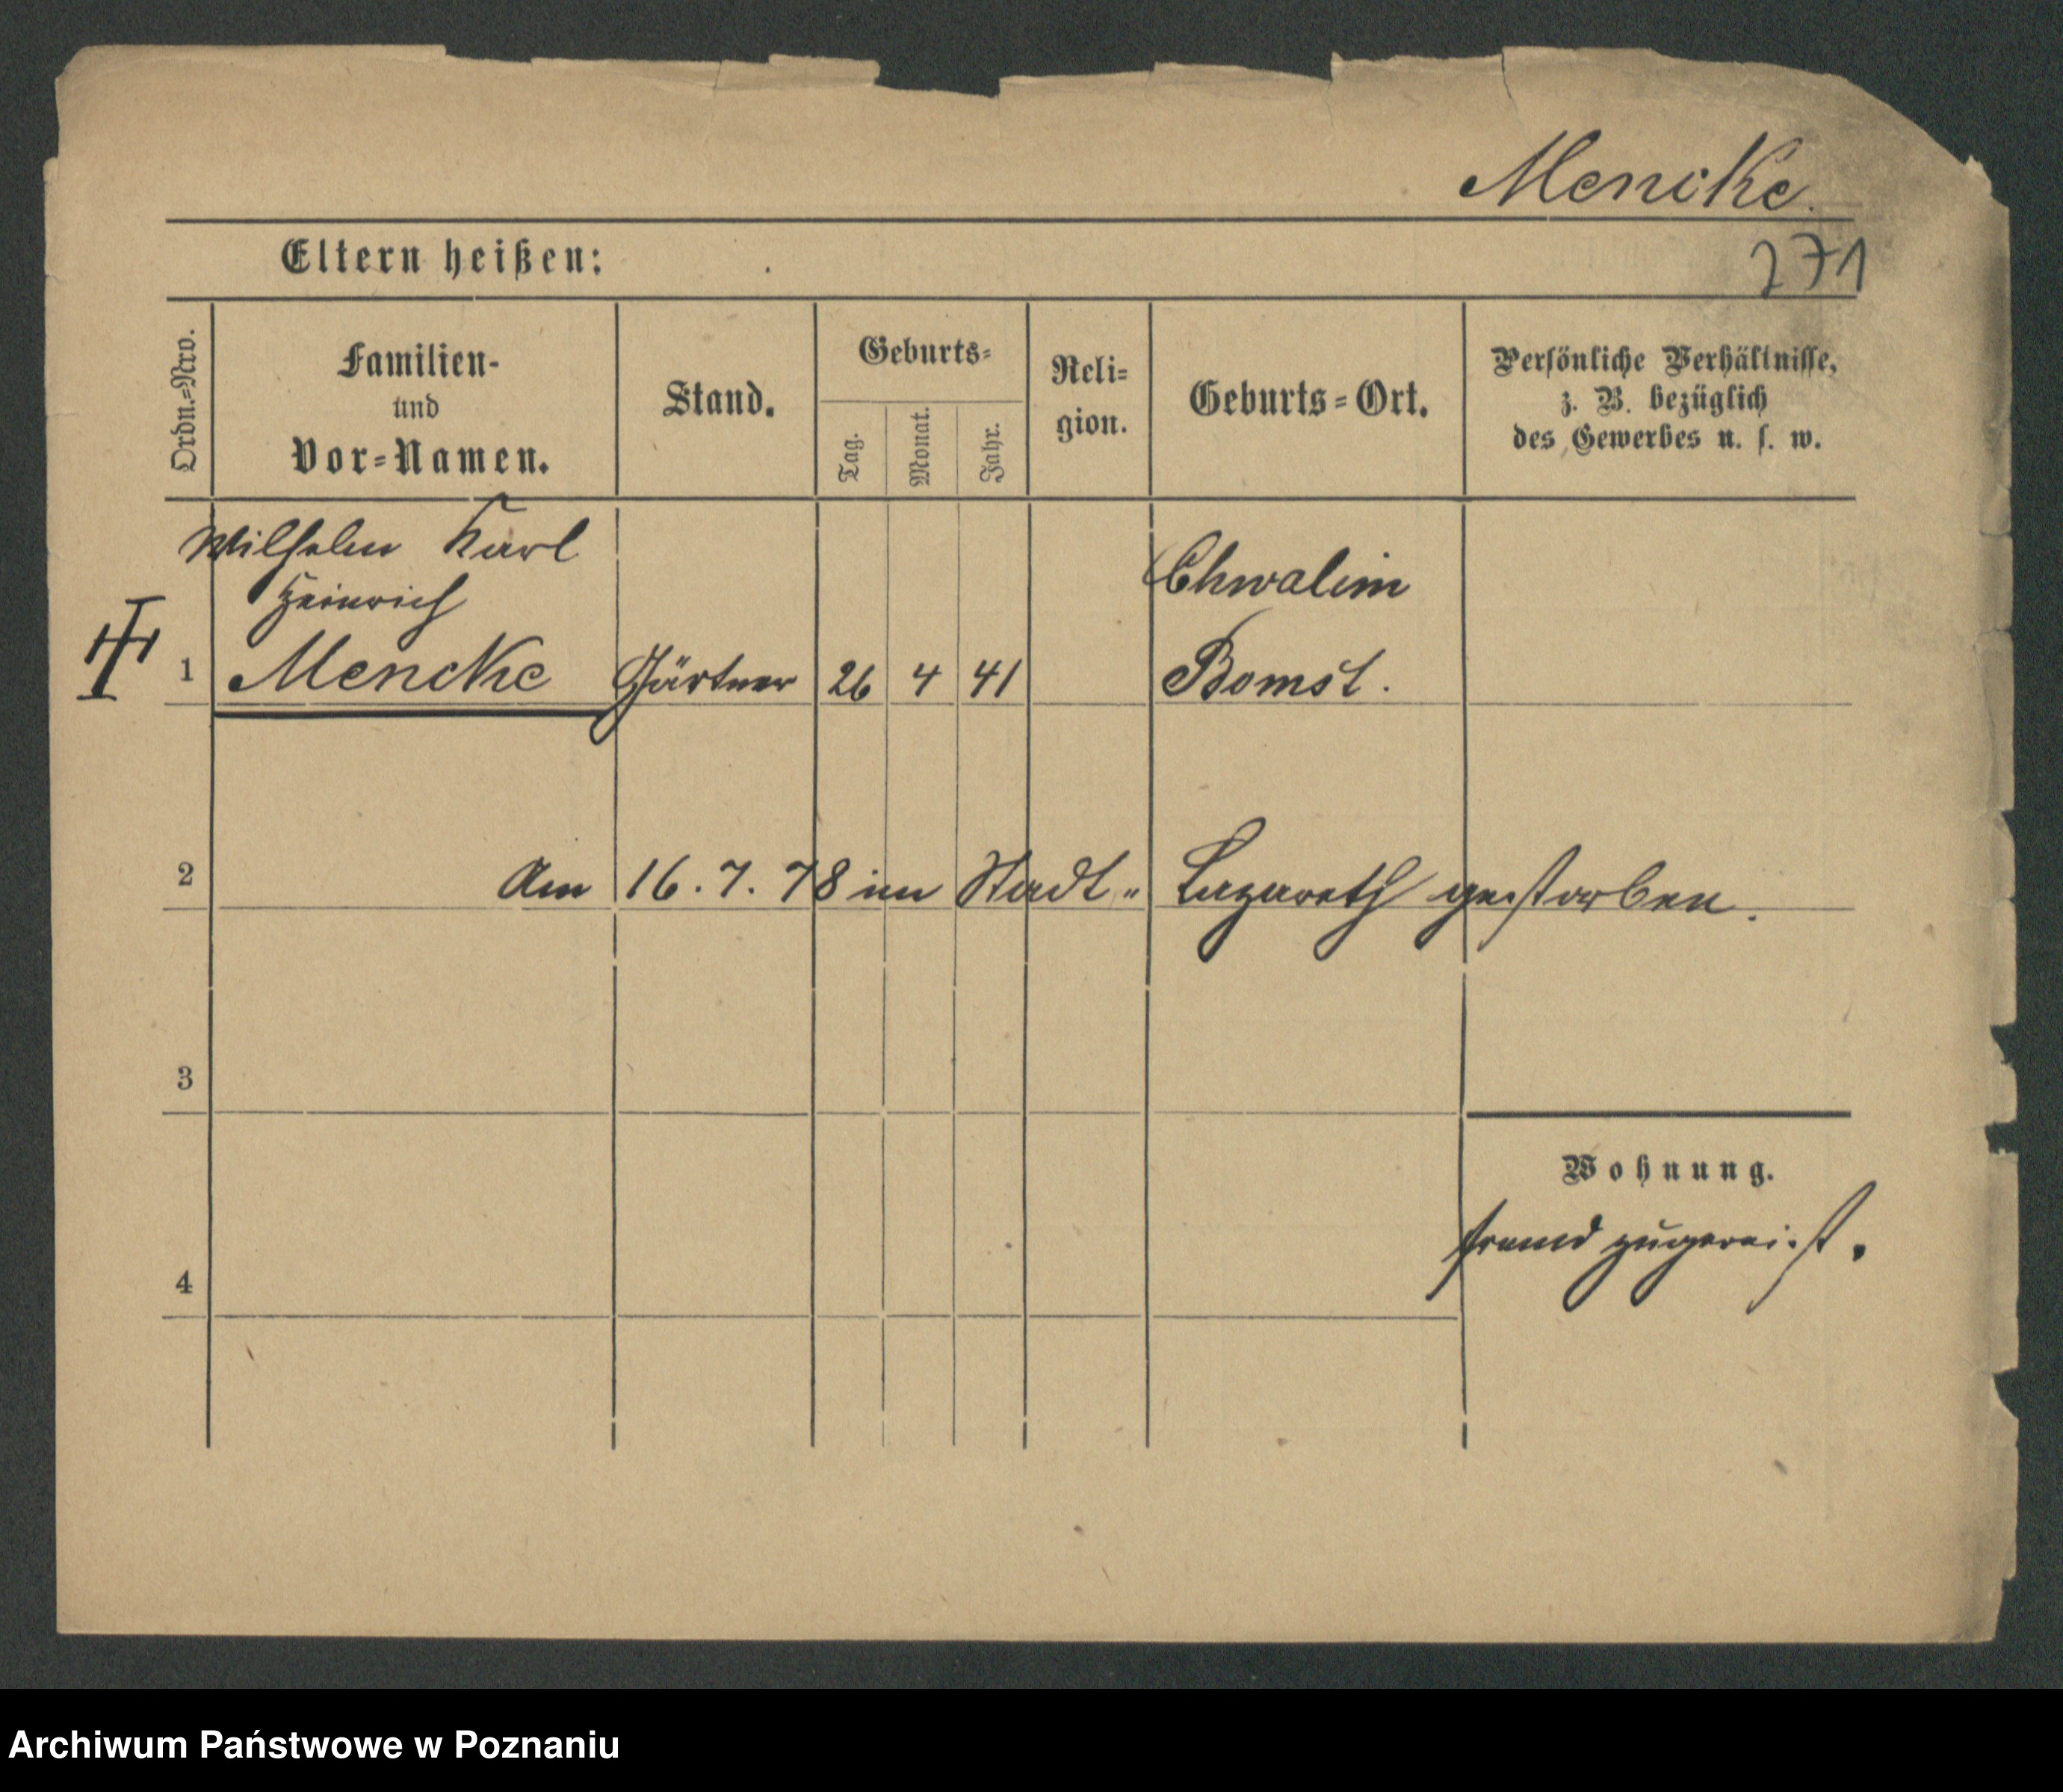 Mencke.
Eltern heißen:
271
Ordn.-Nro.
Familien-
und
Vor-Namen.
Stand.
Geburts-
Tag.
Monat.
Jahr.
Reli-
gion.
Geburts-Ort.
Persönliche Verhältnisse,
z. B. bezüglich
des Gewerbes u. s. w.
Wilhelm Karl
Heinrich
1 Mencke Gärtner 26 4 41
Chwalim
Bomst.
2 Am 16. 7. 78 im Stadt- Lazareth gestorben.
3
Wohnung.
fremd zugereist.
4
Archiwum Państwowe w Poznaniu